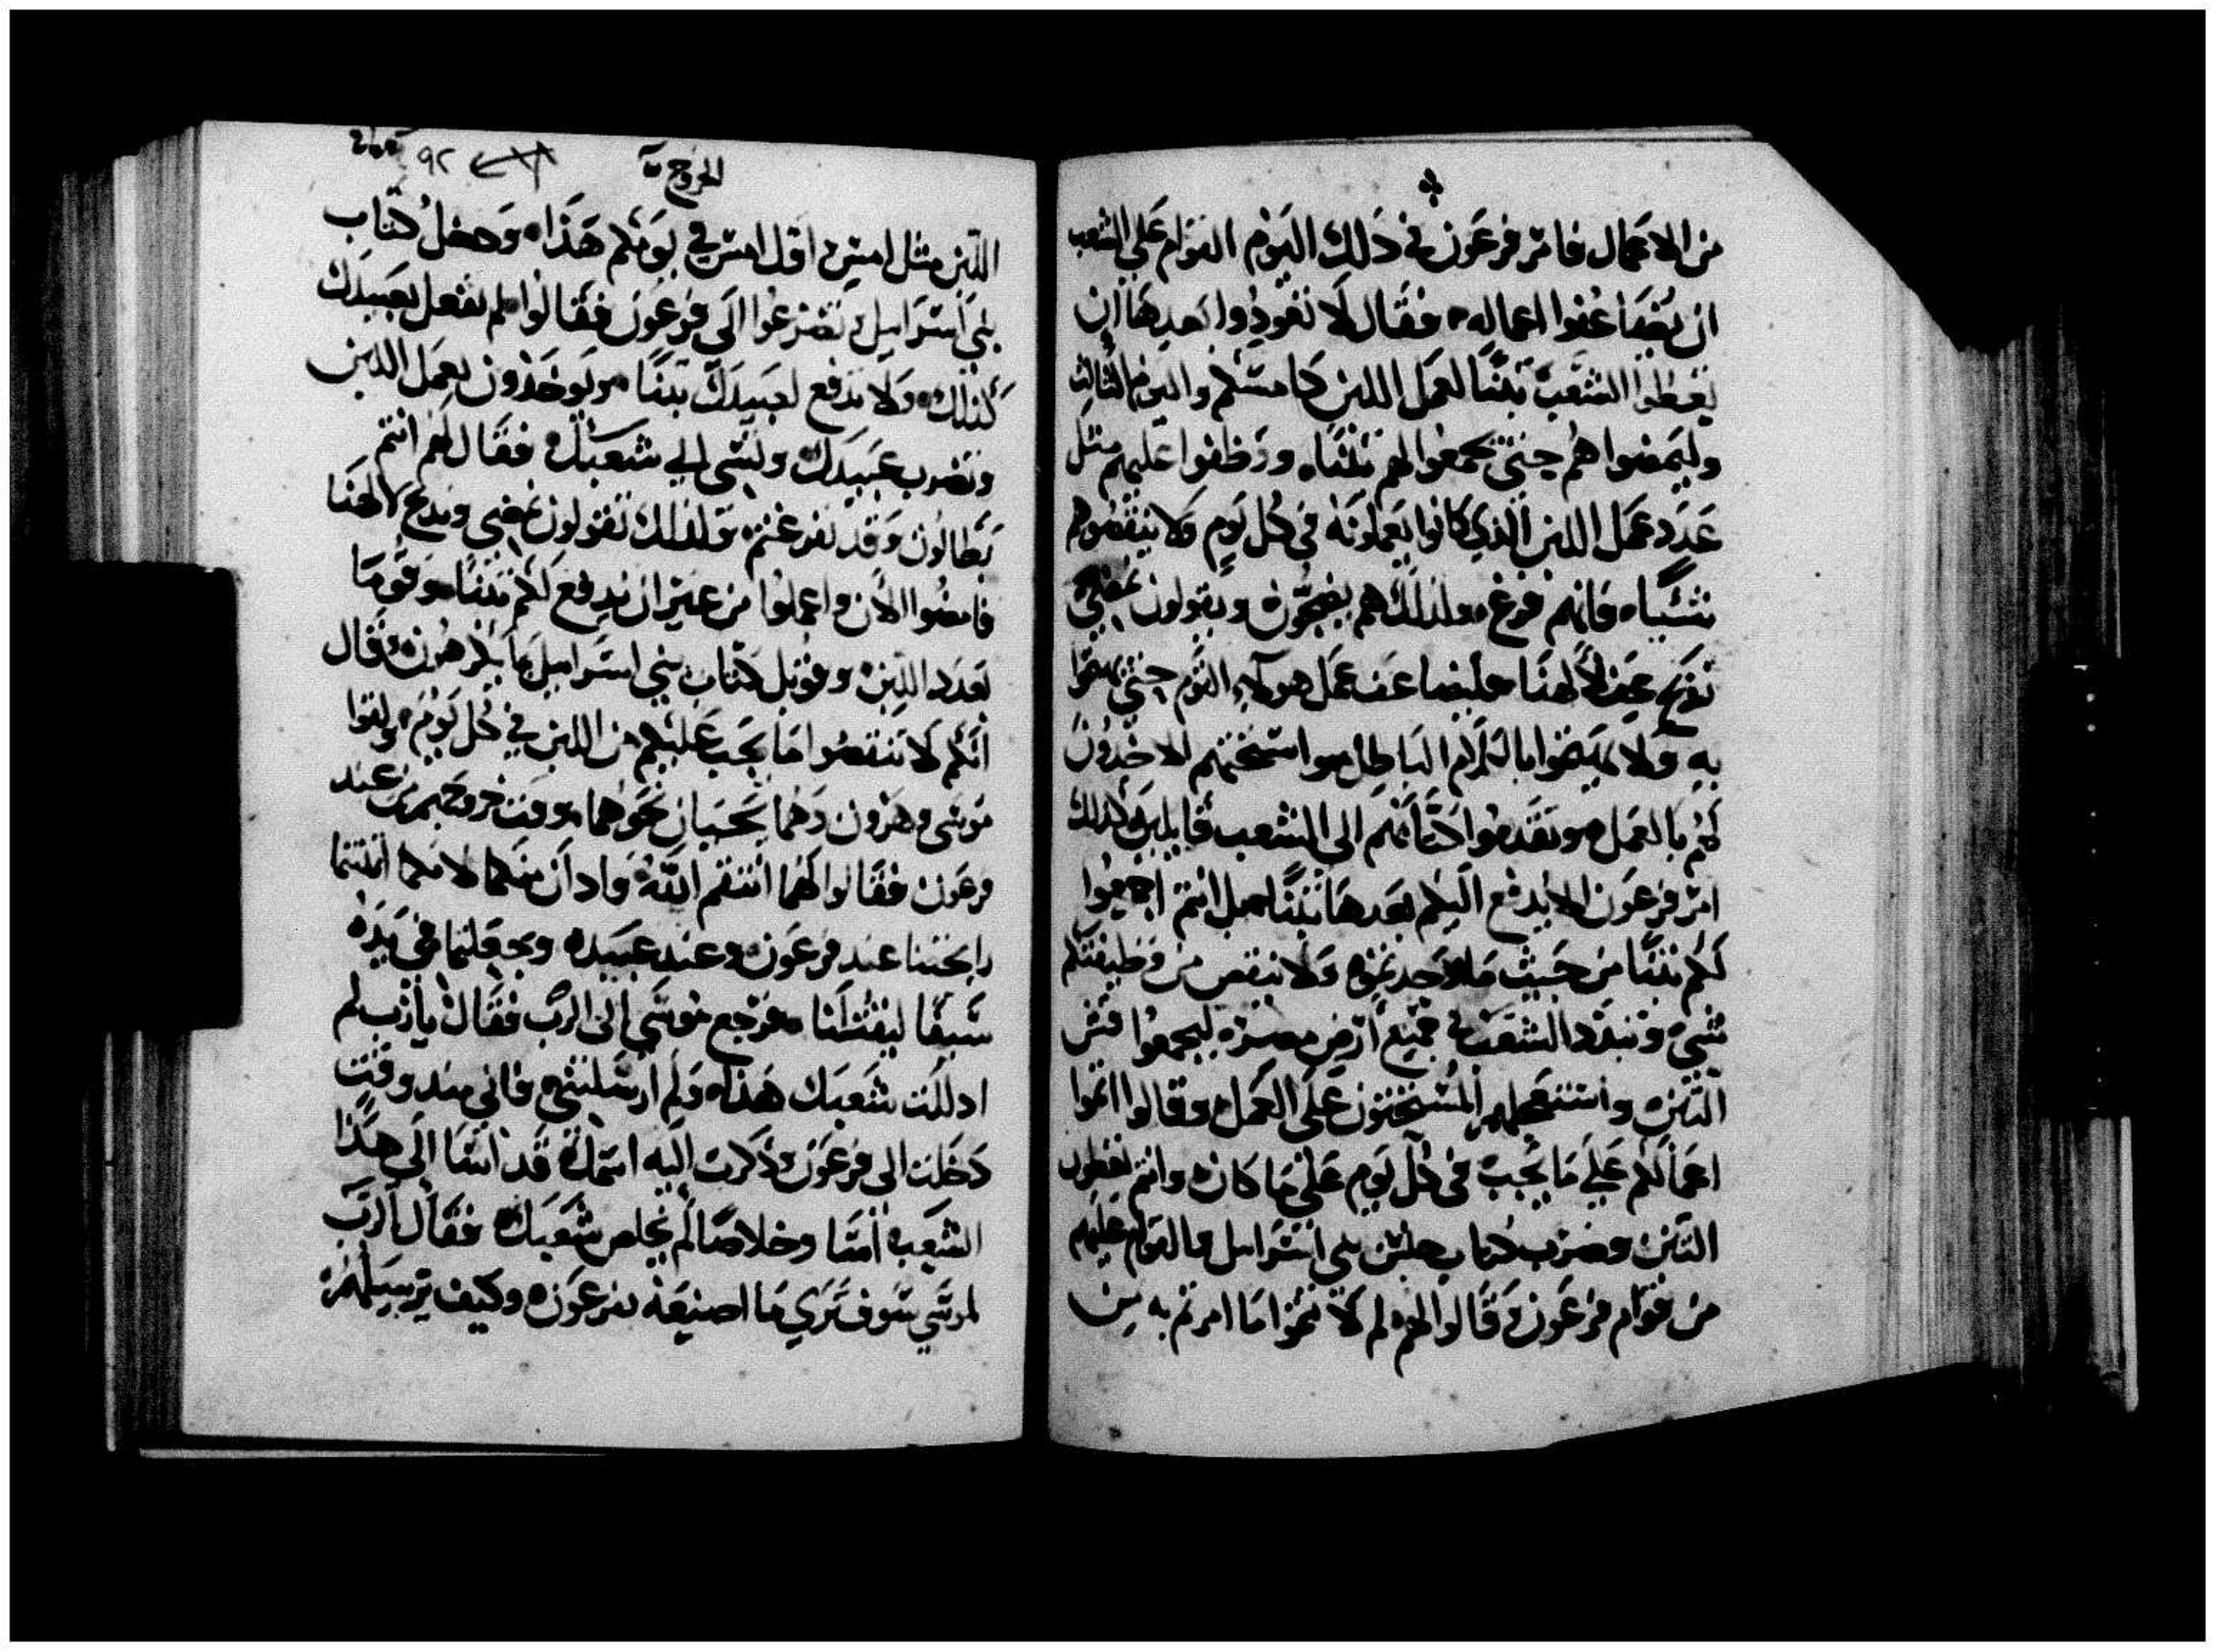 من الاعمال فامر فرعون في ذلك اليوم القوام علي الشعب
ان يضاعفوا اعماله فقال لا تعودوا بعدها ان
تعطوا الشعب تبنًا لعمل اللبن كامسكم واليوم الثالث
وليمضوا هم حتى يجمعوا لهم تبنًا ووظفوا عليهم مثل
عدد عمل اللبن الذي كانوا يعملونه في كل يوم ولا ينقصوهم
شيًا فانهم فرغ ولذلك هم يضجون ويقولون نمضي
نذبح لالهنا فليضاعف عمل هولاء القوم حتى يهتموا
به ولا يهتموا بالكلام الباطل واستحثهم الاخدون
لهم بالعمل وتقدموا كتابهم الى الشعب قايلين كذلك
امر فرعون الا يدفع اليكم بعدها تبنًا بل انتم اجمعوا
لكم تبنًا من حيث ما وجدتموه ولا ينقص من وظيفتكم
شي وتبدد الشعب في جميع ارض مصر ليجمعوا قش
التبن واستعجلهم المستحثون على العمل وقالوا اتموا
اعمالكم علي ما يجب في كل يوم على ما كان وانتم تعطون
التبن وضرب كتاب جنس بني اسراييل والقوام عليهم
من قوام فرعون وقالوا لهم لم لا تتموا ما امرتم به من
الخروج
٩٢
اللبن مثل امس اول امس في يومكم هذا ودخل كتاب
بني اسراييل تضرعوا الى فرعون فقالوا لم تفعل بعبيدك
كذلك ولا تدفع لعبيدك تبنًا ويوخذون بعمل اللبن
وتضرب عبيدك وتسي الي شعبك فقال لهم انتم
بطالون وقد تفرغتم ولذلك تقولون نمضي وندبح لالهنا
فامضوا الان واعملوا من غير ان يدفع لكم تبنًا وقوما
بعدد اللبن وقوبل كتاب بني اسراييل بما يكرهون وقال
انكم لا تنقصوا ما يجب عليكم من اللبن في كل يوم ولقوا
موسى وهرون وهما يجيان نحوهما وقت خروجهم من عند
فرعون فقالوا لهما انتقم الله وادان منكما لانكما انتنتما
رايحتنا عند فرعون وعند عبيده وجعلتما في يده
سيفًا ليقتلنا فرجع موسى الى الرب فقال يا رب لم
ادللت شعبك هذا ولم ارسلتني فاني مند وقت
دخلت الى فرعون وذكرت اليه اسمك قد اسا الى هذا
الشعب امتا وخلاصًا لم تخلص شعبك فقال الرب
لموسى سوف ترى ما اصنعه بفرعون وكيف يرسلهم